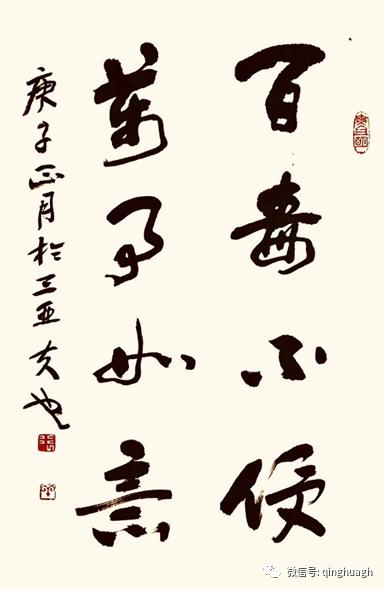 百毒不侵
萬事如意
庚子正月於三亚
微信号: qinghuagh